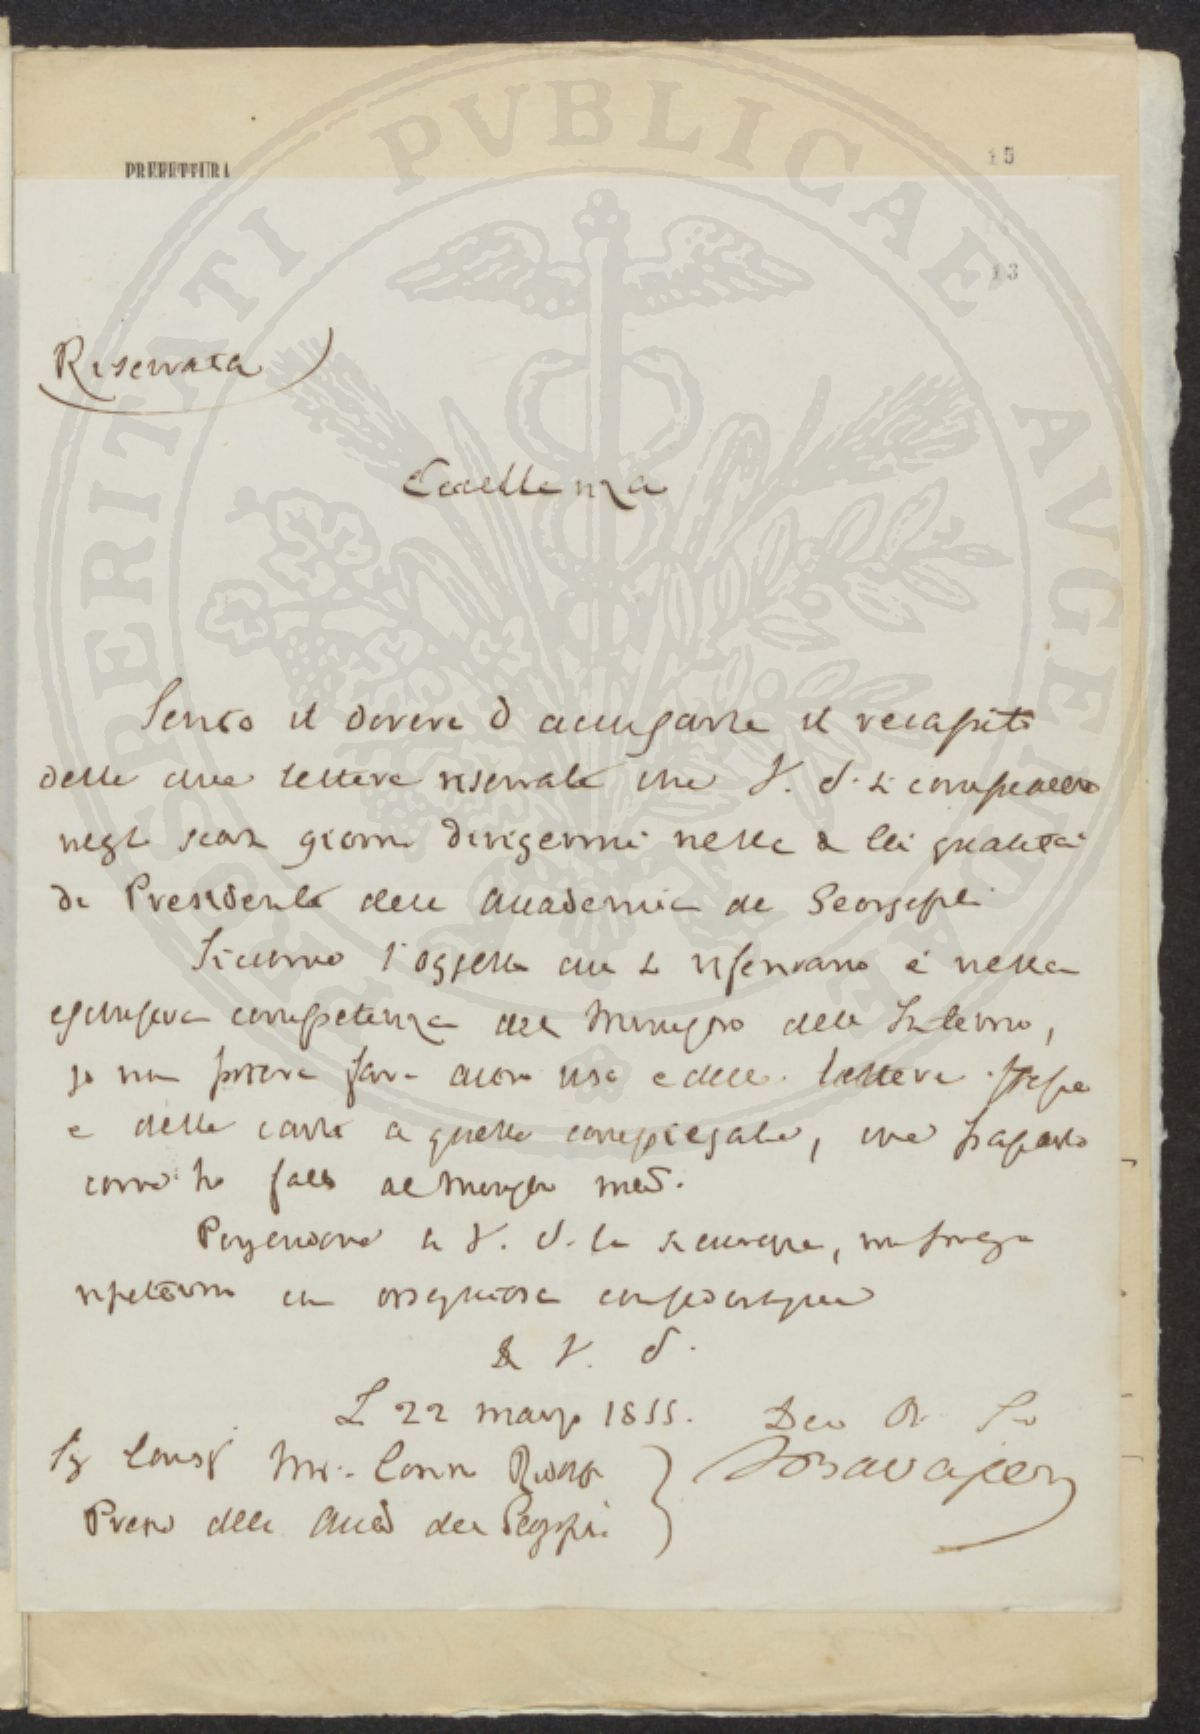 PROSPERITATI PVBLICAE AVGENDAE
PREFETTURA
15
13
Riservata
Eccellenza
Sento il dovere d accusarle il recapito
delle due lettere riservate che V. E. si compiacque
negli scorsi giorni dirigermi nella di lei qualità
di Presidente dell Accademia dei Georgofili
Siccome l'oggetto cui si riferivano è nella
esclusiva competenza del Ministro dell Interno,
io non poteva fare altro uso e delle lettere stesse
e delle carte a quelle compiegate, che
come ho fatto al Ministro med.
Porgendone a V. E. la
ripetermi con ossequiosa
V. E.
L 22 marzo 1855. Dev
Sig Consigl March. Cosimo Ridolfi
Presid dell Accad dei Georgofili